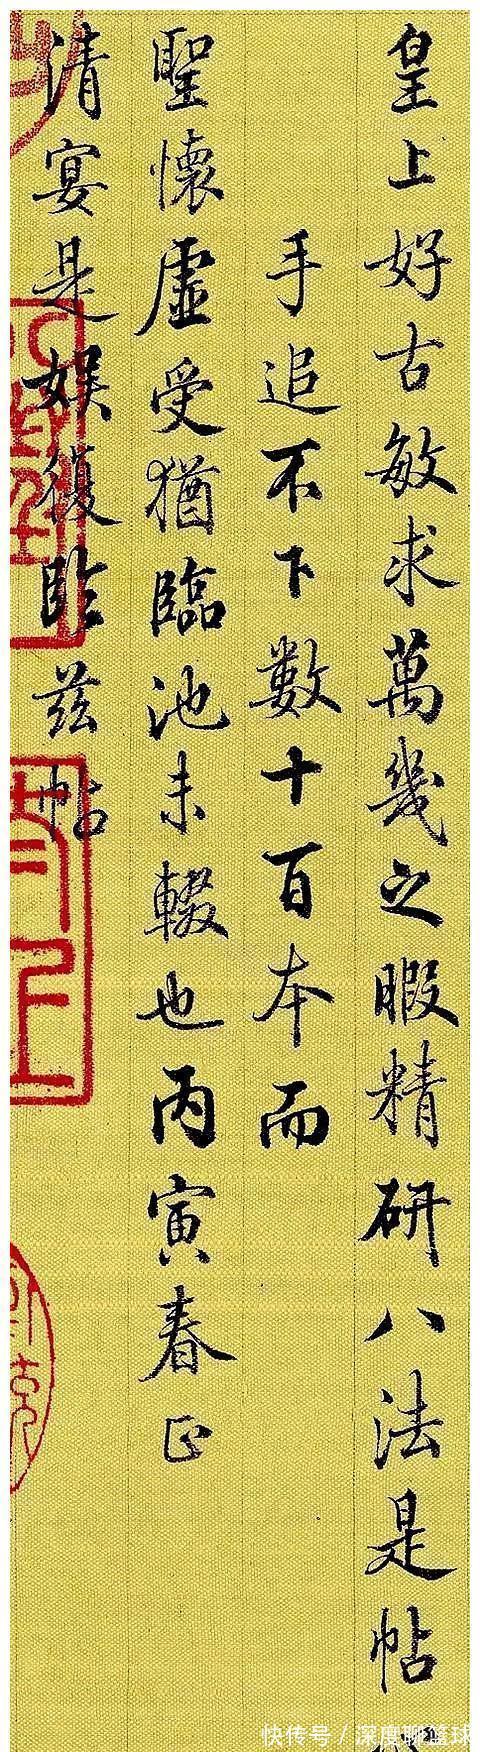 皇上好古敏求萬幾之暇精研八法是帖
手追不下數十百本而
聖懷虛受猶臨池未輟也丙寅春正
清宴是娛復臨茲帖
快传号/深度聊篮球